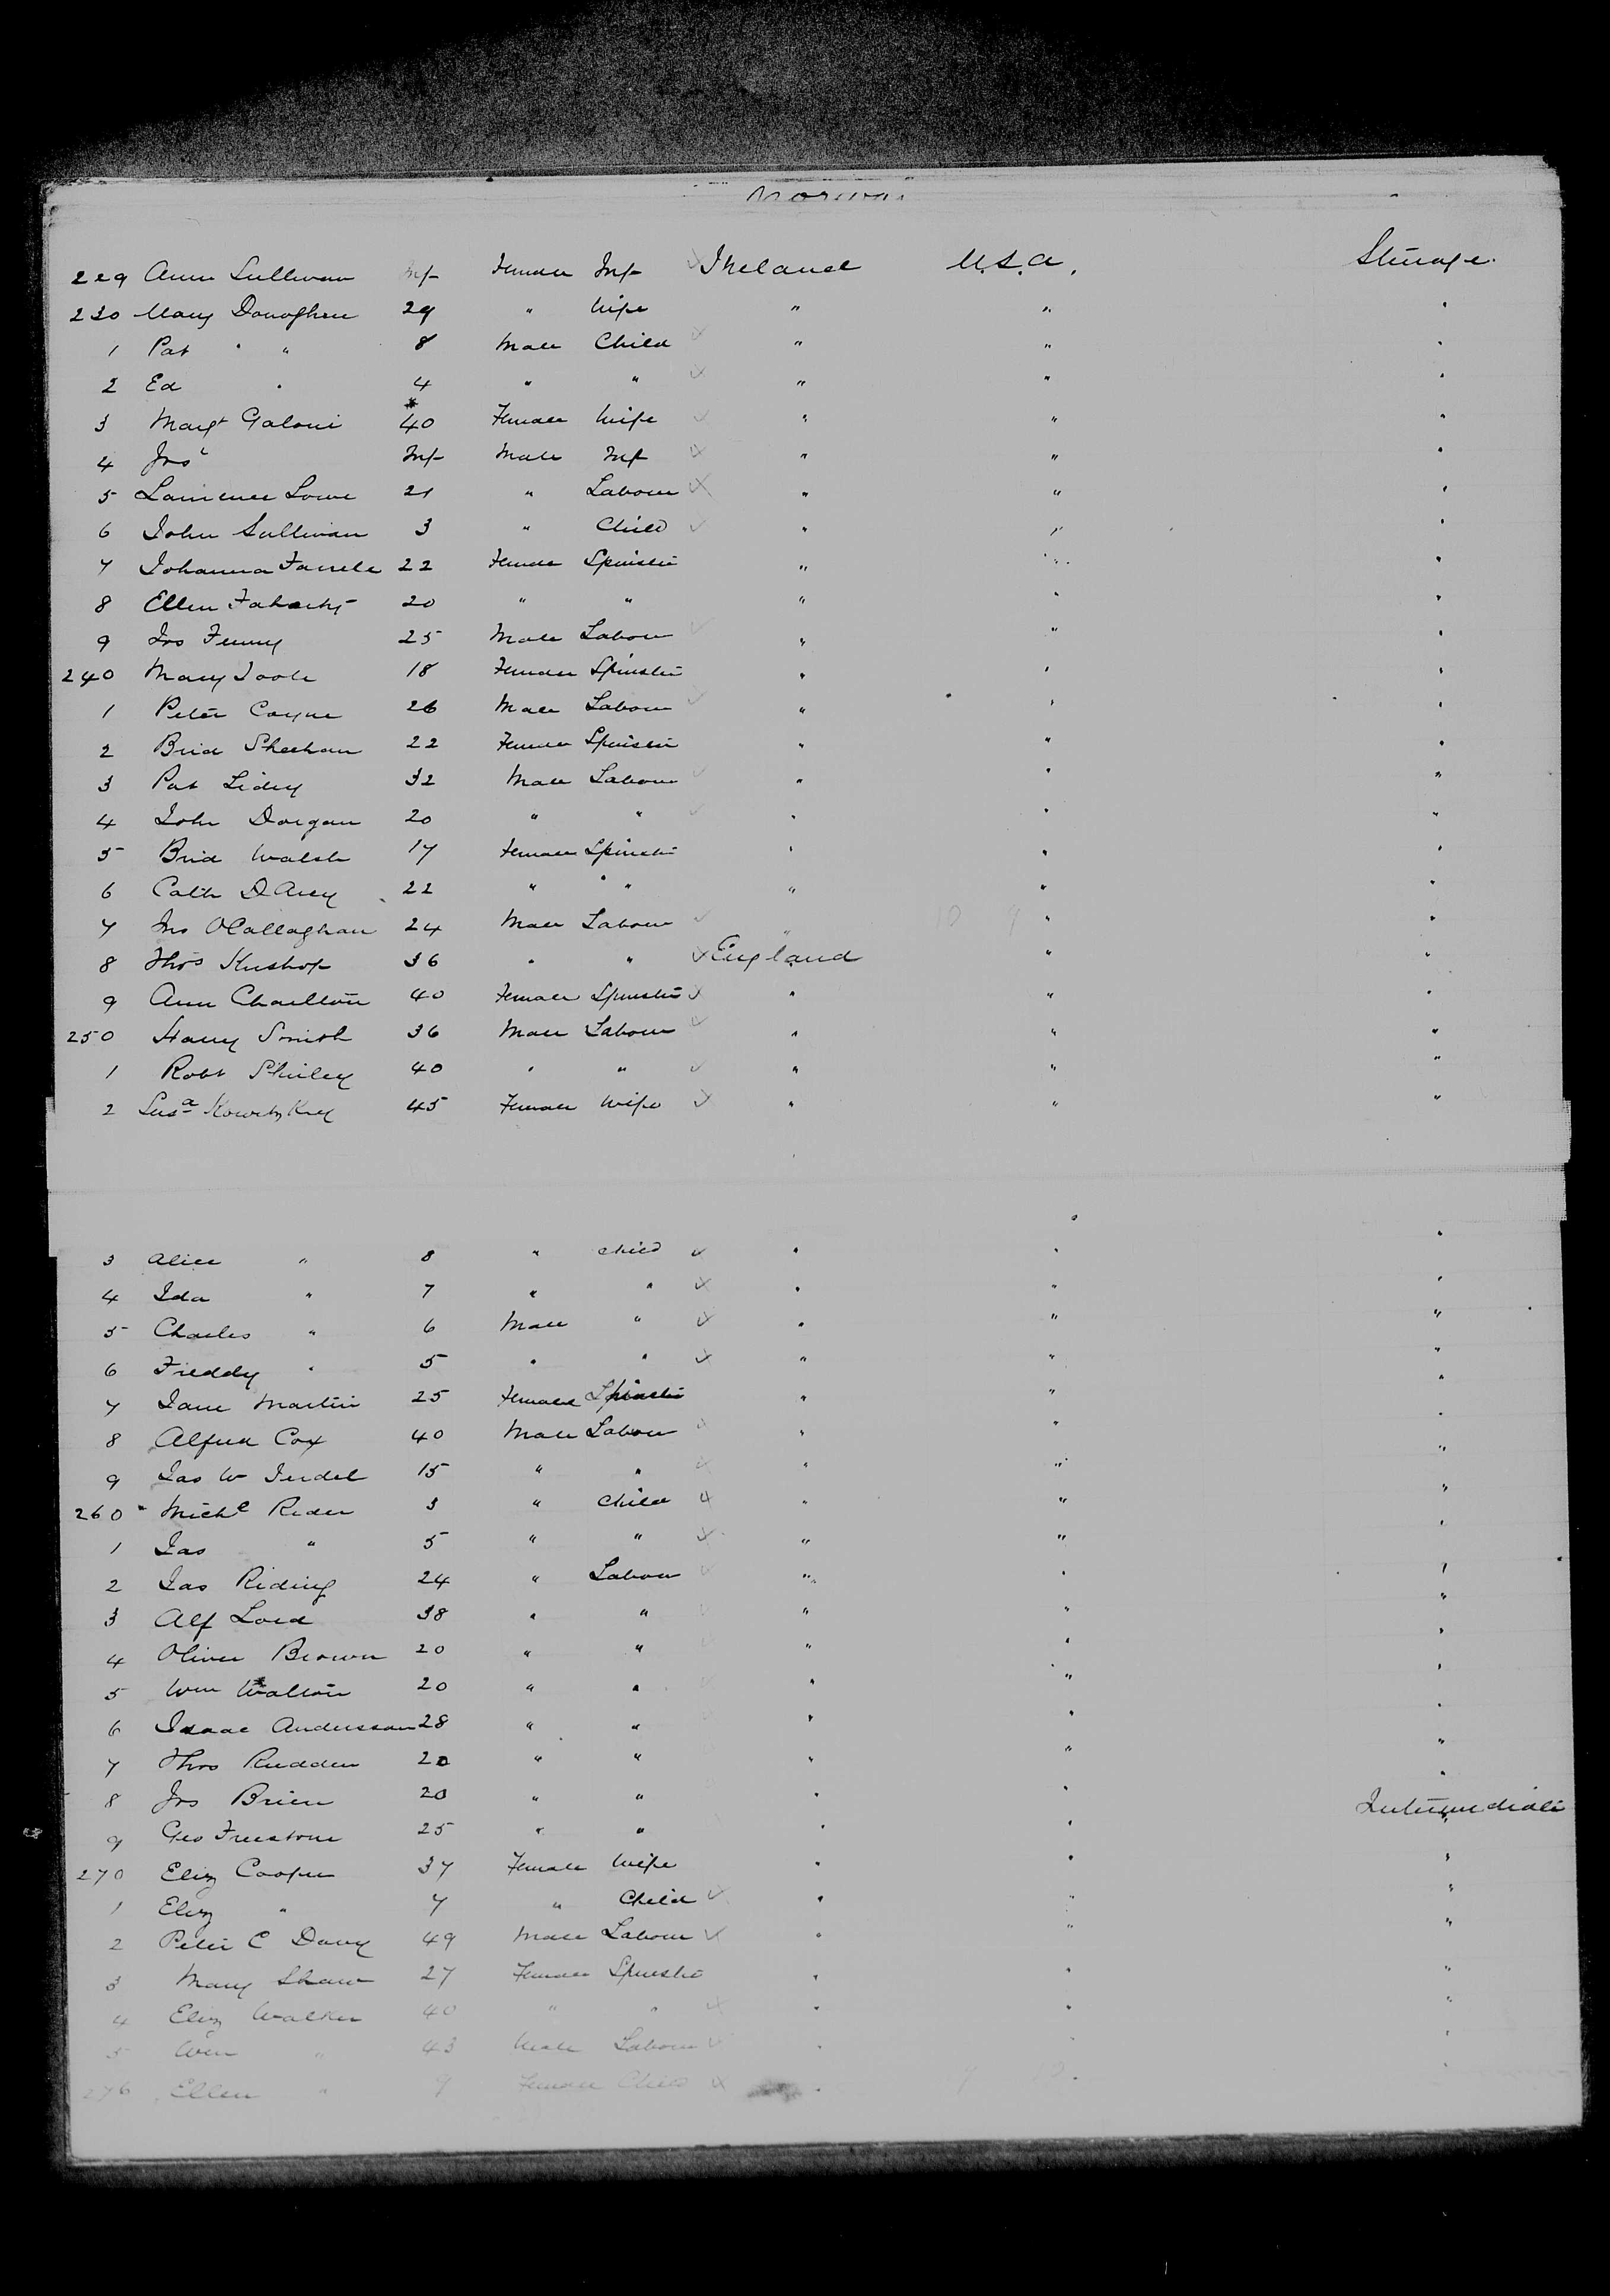 229 Ann Sullivan Inf Female Inf Ireland U.S.A. Steerage
230 Mary Donoghue 29 " Wife " " "
1 Pat " " 8 Male Child " " "
2 Ed " 4 " " " " "
3 Margt 40 Female Wife " " "
4 Jno Inf Male Inf " " "
5 Lawrence Lowe 21 " Labour " " "
6 John Sullivan 3 " Child " " "
7 Johanna Farrele 22 Female Spinster " " "
8 Ellen 20 " " " " "
9 Jno Feeney 25 Male Labour " " "
240 Mary Toole 18 Female Spinster " " "
1 Peter Coyne 26 Male Labour " " "
2 Brid Sheehan 22 Female Spinster " " "
3 Pat Lidey 32 Male Labour " " "
4 John Dorgan 20 " " " " "
5 Brid Walsh 17 Female Spinster " " "
6 Cath DArcy 22 " " " " "
7 Jno OCallaghan 24 Male Labour " " "
8 Thos 36 " " England " "
9 Ann Charlton 40 Female Spinster " " "
250 Harry Smith 36 Male Labour " " "
1 Robt Shirley 40 " " " " "
2 Susa 45 Female Wife " " "
3 Alice " 8 " Child " " "
4 Ida " 7 " " " " "
5 Charles " 6 Male " " " "
6 Freddy " 5 " " " " "
7 Jane Martin 25 Female Spinster " " "
8 Alfred Cox 40 Male Labour " " "
9 Jas W 15 " " " " "
260 Michl Rider 3 " Child " " "
1 Jas " 5 " " " " "
2 Jas Riding 24 " Labour " " "
3 Alf Lord 38 " " " " "
4 Oliver Brown 20 " " " " "
5 Wm Walton 20 " " " " "
6 Isaac Anderssan 28 " " " " "
7 Thos Rudden 20 " " " " "
8 Jno Brien 20 " " " " "
9 Geo Freestone 25 " " " " Intermediate
270 Eliz Cooper 37 Female Wife " " "
1 Eliz " 7 " Child " " "
2 Peter C Davy 49 Male Labour " " "
3 Mary Shaw 27 Female Spinster " " "
4 Eliz Walker 40 " " " " "
5 Wm " 43 Male Labour " " "
276 Ellen " 9 Female Child " " "